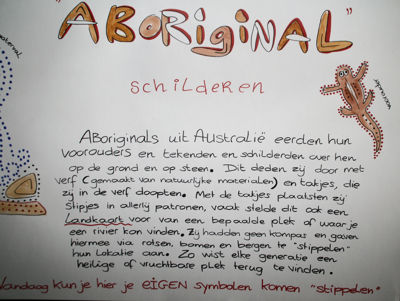 "ABORIGINAL"
schilderen
Aboriginals uit Australië eerden hun
voorouders en tekenden en schilderden over hen
op de grond en op steen. Dit deden zij door met
verf (gemaakt van natuurlijke materialen) en takjes, die
zij in de verf doopten. Met de takjes plaatsten zij
stipjes in allerlij patronen, vaak stelde dit ook een
Landkaart voor van een bepaalde plek of waar je
een rivier kon vinden. Zij hadden geen kompas en gaven
hiermee via rotsen, bomen en bergen te "stippelen"
hun Lokatie aan. Zo wist elke generatie een
heilige of vruchtbare plek terug te vinden.
Vandaag kun je hier je EIGEN symbolen komen "stippelen"